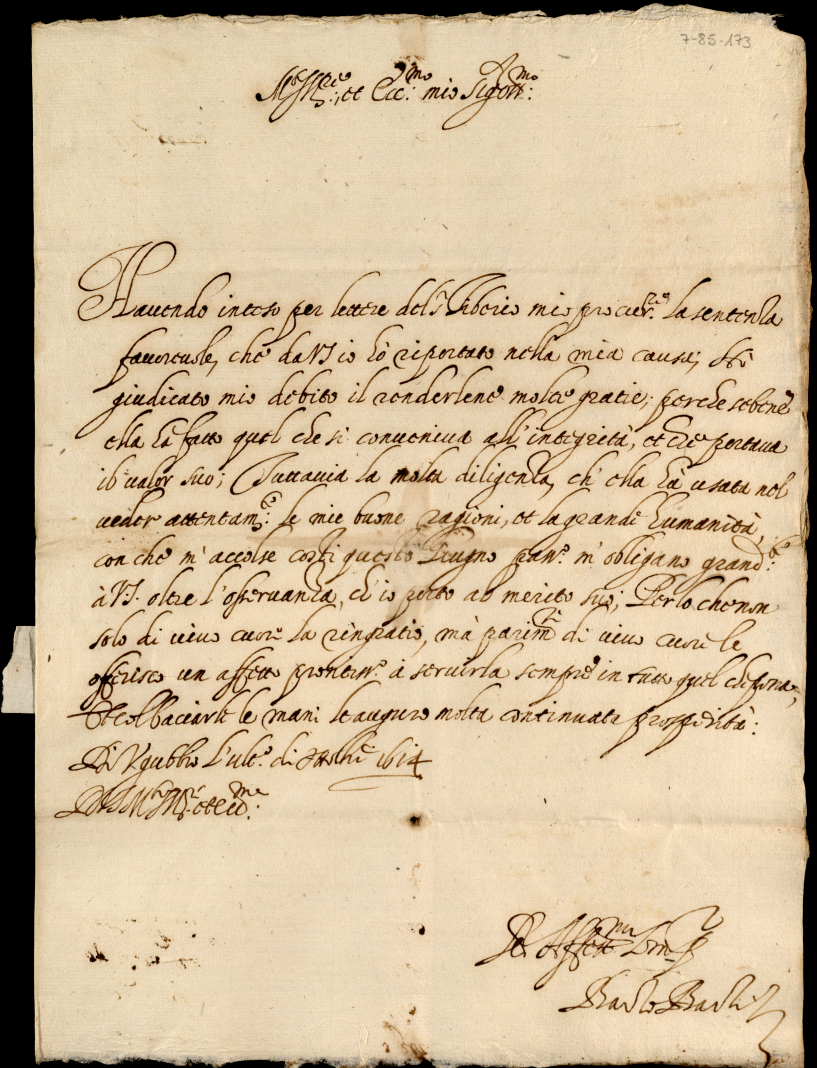 7-85-173
et Ecc.mo mio Sig.r
Havendo inteso per lettere del S.r Tiberio mio procur.re la sentenza
favorevole, che da VS io hò riportato nella mia causa; hò
giudicato mio debito il renderlene molte gratie; perche sebene
ella hà fatto quel che si conveniva all'integrità, et che portava
il valor suo; Tuttavia la molta diligenza, ch'ella hà usata nel
veder attentam.te le mie buone ragioni, et la grande humanità,
con che m'accolse questo Giugno m'obligano grand.te
à VS. oltre l'osservanza, ch'io porto al merito suo; Per lo che non
solo di vivo cuore la ringratio, mà parim.ti di vivo cuore le
offerisco un affetto prontiss.o à servirla sempre in tutto quel che
Et col baciarle le mani le auguro molta continuata prosperità:
Di Vgubbio l'ult.o di 1614
Di VS M.to Ill.re et Ecc.ma
Ser.